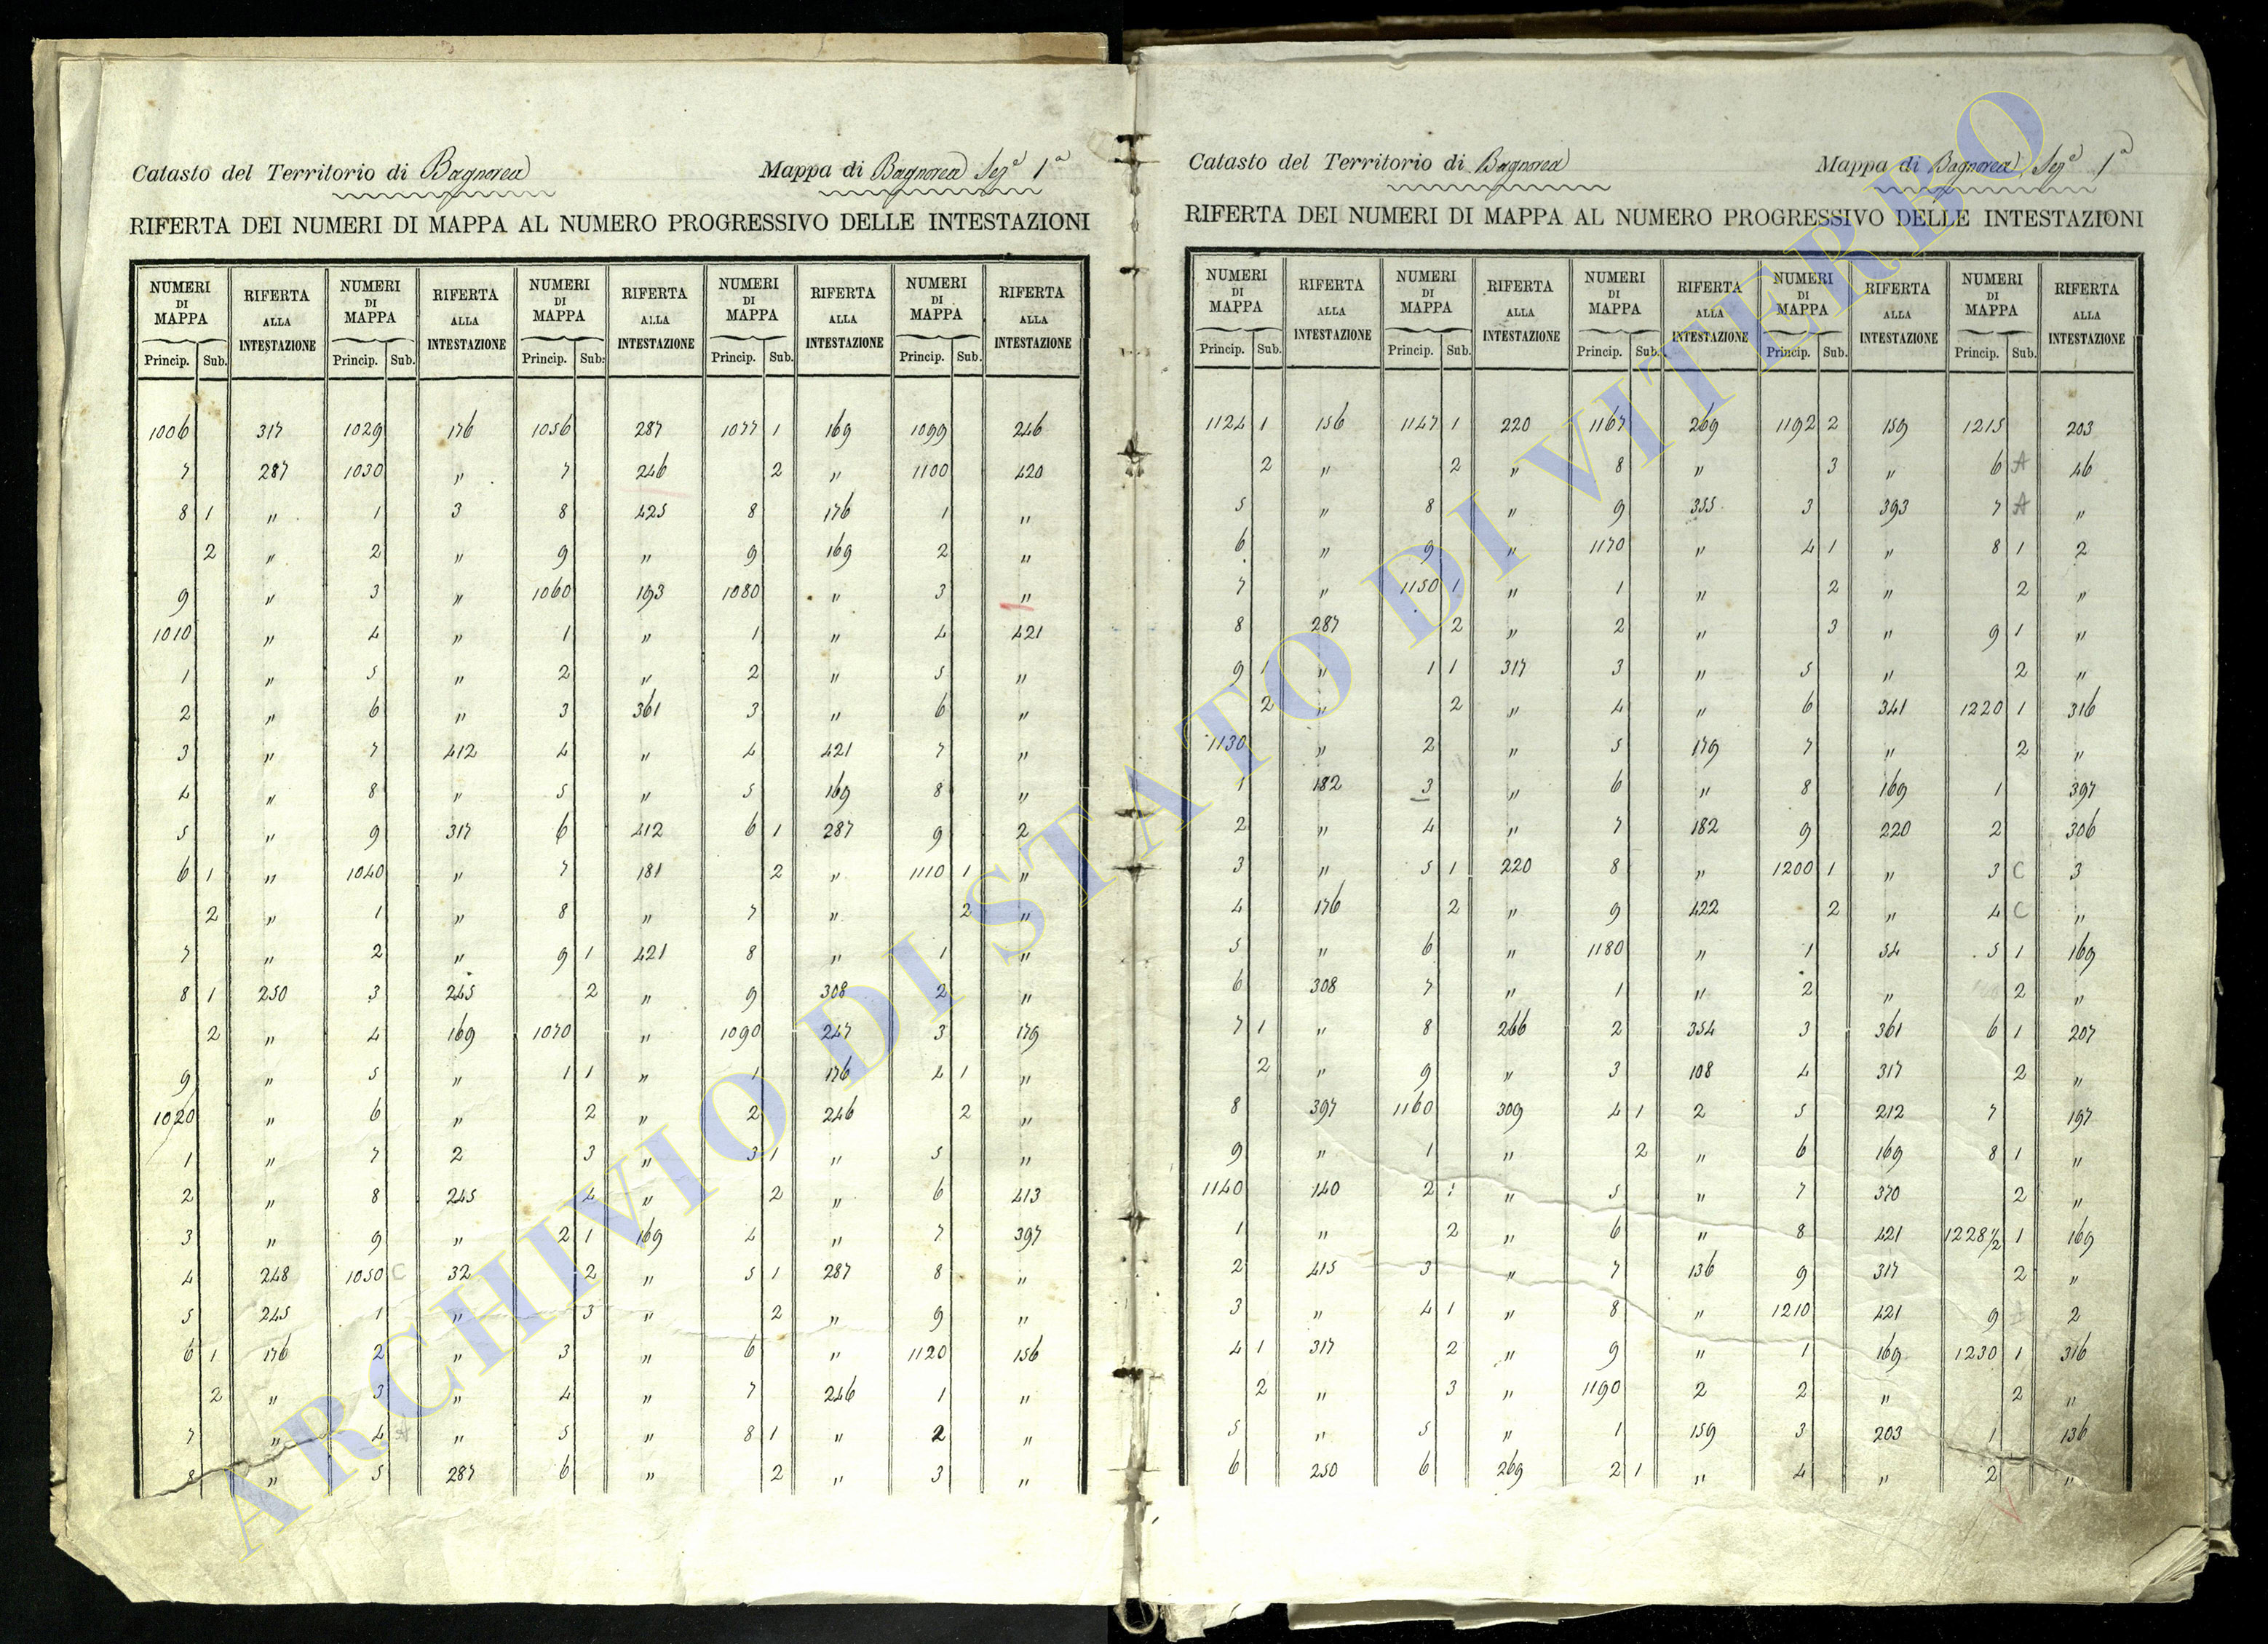 Catasto del Territorio di Bagnorea Mappa di Bagnorea Sez.e 1a
RIFERTA DEI NUMERI DI MAPPA AL NUMERO PROGRESSIVO DELLE INTESTAZIONI
NUMERI DI MAPPA RIFERTA ALLA INTESTAZIONE NUMERI DI MAPPA RIFERTA ALLA INTESTAZIONE NUMERI DI MAPPA RIFERTA ALLA INTESTAZIONE NUMERI DI MAPPA RIFERTA ALLA INTESTAZIONE NUMERI DI MAPPA RIFERTA ALLA INTESTAZIONE
Princip. Sub. Princip. Sub. Princip. Sub. Princip. Sub. Princip. Sub.
1006 317 1029 176 1056 287 1077 1 169 1099 246
7 287 1030 " 7 246 2 " 1100 420
8 1 " 1 3 8 425 8 176 1 "
2 " 2 " 9 " 9 169 2 "
9 " 3 " 1060 193 1080 " 3 "
1010 " 4 " 1 " 1 " 4 421
1 " 5 " 2 " 2 " 5 "
2 " 6 " 3 361 3 " 6 "
3 " 7 412 4 " 4 421 7 "
4 " 8 " 5 " 5 169 8 "
5 " 9 317 6 412 6 1 287 9 2
6 1 " 1040 " 7 181 2 " 1110 1 "
2 " 1 " 8 " 7 " 2 "
7 " 2 " 9 1 421 8 " 1 "
8 1 250 3 245 2 " 9 308 2 "
2 " 4 169 1070 " 1090 247 3 179
9 " 5 " 1 1 " 1 176 4 1 "
1020 " 6 " 2 " 2 246 2 "
1 " 7 2 3 " 3 1 " 5 "
2 " 8 245 4 " 2 " 6 413
3 " 9 " 2 1 169 4 " 7 397
4 248 1050 C 32 2 " 5 1 287 8 "
5 245 1 " 3 " 2 " 9 "
6 1 176 2 " 3 " 6 " 1120 156
2 " 3 " 4 " 7 246 1 "
7 " 4 A " 5 " 8 1 " 2 "
8 " 5 287 6 " 2 " 3 "
Catasto del Territorio di Bagnorea Mappa di Bagnorea Sez.e 1a
RIFERTA DEI NUMERI DI MAPPA AL NUMERO PROGRESSIVO DELLE INTESTAZIONI
NUMERI DI MAPPA RIFERTA ALLA INTESTAZIONE NUMERI DI MAPPA RIFERTA ALLA INTESTAZIONE NUMERI DI MAPPA RIFERTA ALLA INTESTAZIONE NUMERI DI MAPPA RIFERTA ALLA INTESTAZIONE NUMERI DI MAPPA RIFERTA ALLA INTESTAZIONE
Princip. Sub. Princip. Sub. Princip. Sub. Princip. Sub. Princip. Sub.
1124 1 156 1147 1 220 1167 269 1192 2 159 1215 203
2 " 2 " 8 " 3 " 6 A 46
5 " 8 " 9 355 3 393 7 A "
6 " 9 " 1170 " 4 1 " 8 1 2
7 " 1150 1 " 1 " 2 " 2 "
8 287 2 " 2 " 3 " 9 1 "
9 1 " 1 1 317 3 " 5 " 2 "
2 " 2 " 4 " 6 341 1220 1 316
1130 " 2 " 5 179 7 " 2 "
1 182 3 " 6 " 8 169 1 397
2 " 4 " 7 182 9 220 2 306
3 " 5 1 220 8 " 1200 1 " 3 C 3
4 176 2 " 9 422 2 " 4 C "
5 " 6 " 1180 " 1 54 5 1 169
6 308 7 " 1 " 2 " 2 "
7 1 " 8 266 2 354 3 361 6 1 207
2 " 9 " 3 108 4 317 2 "
8 397 1160 309 4 1 2 5 212 7 197
9 " 1 " 2 " 6 169 8 1 "
1140 140 2 1 " 5 " 7 370 2 "
1 " 2 " 6 " 8 421 1228 1/2 1 169
2 415 3 " 7 136 9 317 2 "
3 " 4 1 " 8 " 1210 421 9 2
4 1 317 2 " 9 " 1 169 1230 1 316
2 " 3 " 1190 2 2 " 2 "
5 " 5 " 1 159 3 203 1 136
6 250 6 269 2 1 " 4 " 2 "
ARCHIVIO DI STATO DI VITERBO